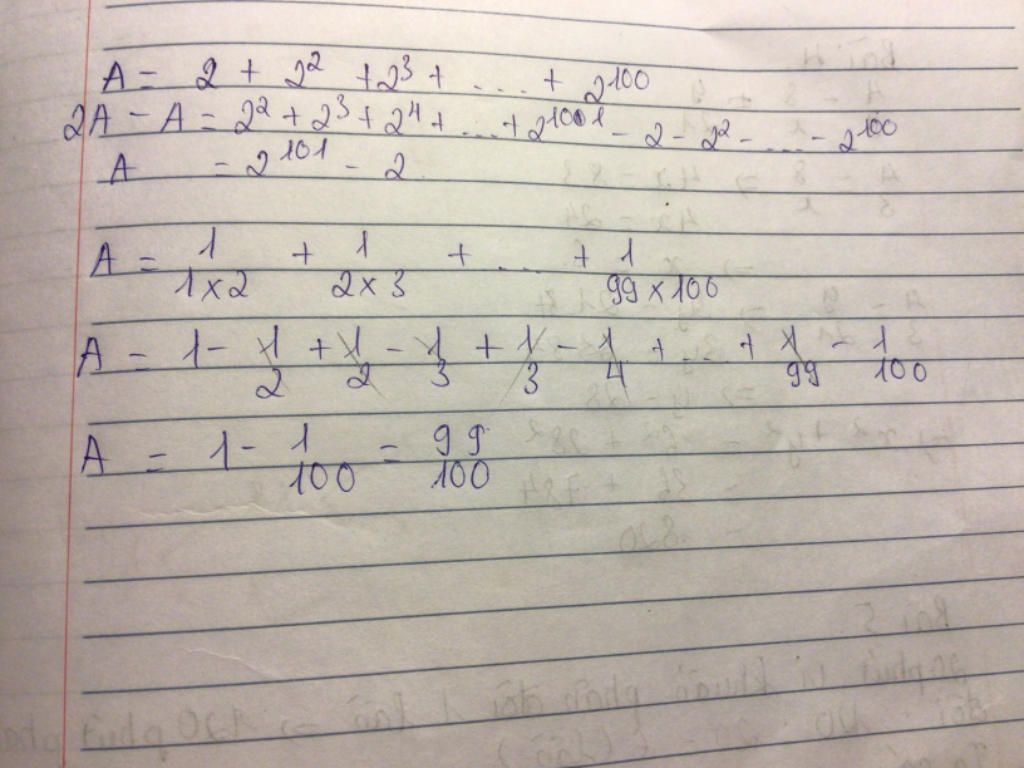 A = 2 + 2² + 2³ + .... + 2¹⁰⁰
2A - A = 2² + 2³ + 2⁴ + ... + 2¹⁰¹ - 2 - 2² - ... - 2¹⁰⁰
A = 2¹⁰¹ - 2
A = 1/(1×2) + 1/(2×3) + .... + 1/(99×100)
A = 1 - 1/2 + 1/2 - 1/3 + 1/3 - 1/4 + ... + 1/99 - 1/100
A = 1 - 1/100 = 99/100